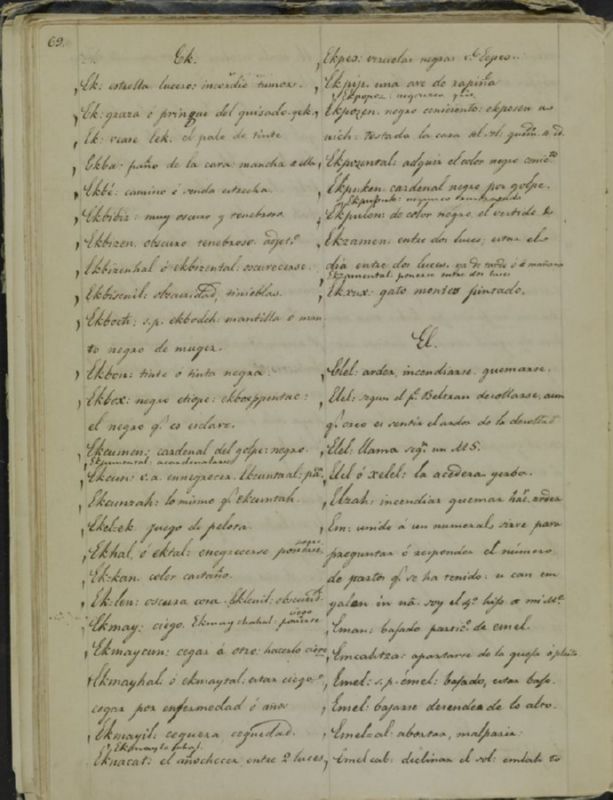 69.
Ek.
Ek: estrella lucero: incordio tumor.
Ek: graza ó pringue del guisado. yek.
Ek: vease tek: el palo de tinte
Ekba: paño de la cara: mancha
Ekbé: camino ó senda estrecha.
Ekbibiz: muy oscuro y tenebroso.
Ekbizen. obscuro tenebroso. adjet.º
Ekbizenhal ó ekbizental: oscurecerse.
Ekbisenil: obscuridad, tinieblas.
Ekboch: s.p. ekboch: mantilla ó man
to negro de muger.
Ekbon: tinte ó tinta negra:
Ekbox: negro etiope: ekboxppentac:
el negro q.e es esclavo.
Ekcumen: cardenal del golpe: negro.
Ekcumental: acardenalarse
Ekcun: v.a. ennegrecer. Ekcuntaal:
Ekcunzah: lo mismo q.e ekcuntah.
Ekel-ek. juego de pelota.
Ekhal ó ektal: enegrecerse ponerse negro
Ek-kan. color castaño.
Ek-len: oscura cosa. Eklenil: obscurid.d
Ekmay: ciego. Ekmaychahal: ponerse ciego
Ekmaycun: cegar á otro: hacerlo ciego
Ekmayhal: ó ekmaytal, estar ciego
cegar por enfermedad ó
Ekmayil: ceguera ceguedad.
Eknacat: el añochecer entre 2 luces
Ekpes: viruelas negras
Ekpip. una ave de rapiña
Ekpozen: negro ceniciento: ekpozen u
uich: tostada la cara al sol:
Ekpozental: adquir el color negro
Ekpuken cardenal negro por golpe.
Ekpulen: de color negro, el vertido
Ekzamen: entre dos luces; estar el
dia entre dos luces. ya de tarde ó á mañana
Ekzamental: ponerse entre dos luces
Ekxux: gato montes pintado.
El.
Elel: arder, incendiarse. quemarse.
Elel: segun el p.e Beltran desollarse, aun
q.e creo es sentir el ardor de la
Elel: llama seg.n un MS.
Elel ó xelel: la acedera yerba.
Elzah: incendiar quemar arder
Em: unido á un numeral, sirve para
preguntar ó responder el número
de partos q.e se ha tenido: u can em
yalen in ná. soy el 4.º hijo de mi M.e
Eman: bajado partic.º de emel.
Emcabtza: apartarse de la queja ó pleito
Emel: s.p. émel: bajado, estar bajo.
Emel: bajarse decender de lo alto.
Emel-al: abortar, malparir:
Emelcab: declinar el sol: